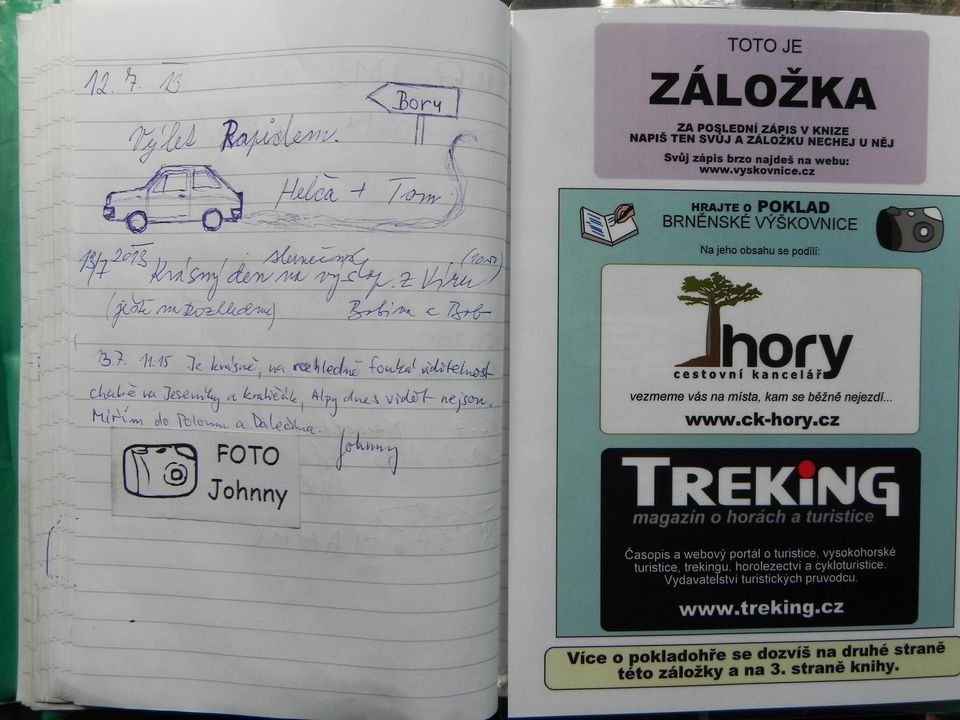 12. 7. 13
Bory
Výlet Rapidem.
Helča + Tom
13/7 2013 Krásný slunečný den na výstup z Víru
(ještě na rozhlednu) Bobina a Bob
13.7. 11.15 Je krásně, na rozhledně fouká viditelnost
chabě na Jeseníky a kraličák, Alpy dnes vidět nejsou.
Mířím do Polomu a Dalečína.
Johnny
FOTO
Johnny
TOTO JE
ZÁLOŽKA
ZA POSLEDNÍ ZÁPIS V KNIZE
NAPIŠ TEN SVŮJ A ZÁLOŽKU NECHEJ U NĚJ
Svůj zápis brzo najdeš na webu:
www.vyskovnice.cz
HRAJTE O POKLAD
BRNĚNSKÉ VÝŠKOVNICE
Na jeho obsahu se podílí:
hory
cestovní kancelář
vezmeme vás na místa, kam se běžně nejezdí...
www.ck-hory.cz
TREKiNG
magazín o horách a turistice
Časopis a webový portál o turistice, vysokohorské
turistice, trekingu, horolezectví a cykloturistice.
Vydavatelství turistických pruvodcu.
www.treking.cz
Více o pokladohře se dozvíš na druhé straně
této záložky a na 3. straně knihy.